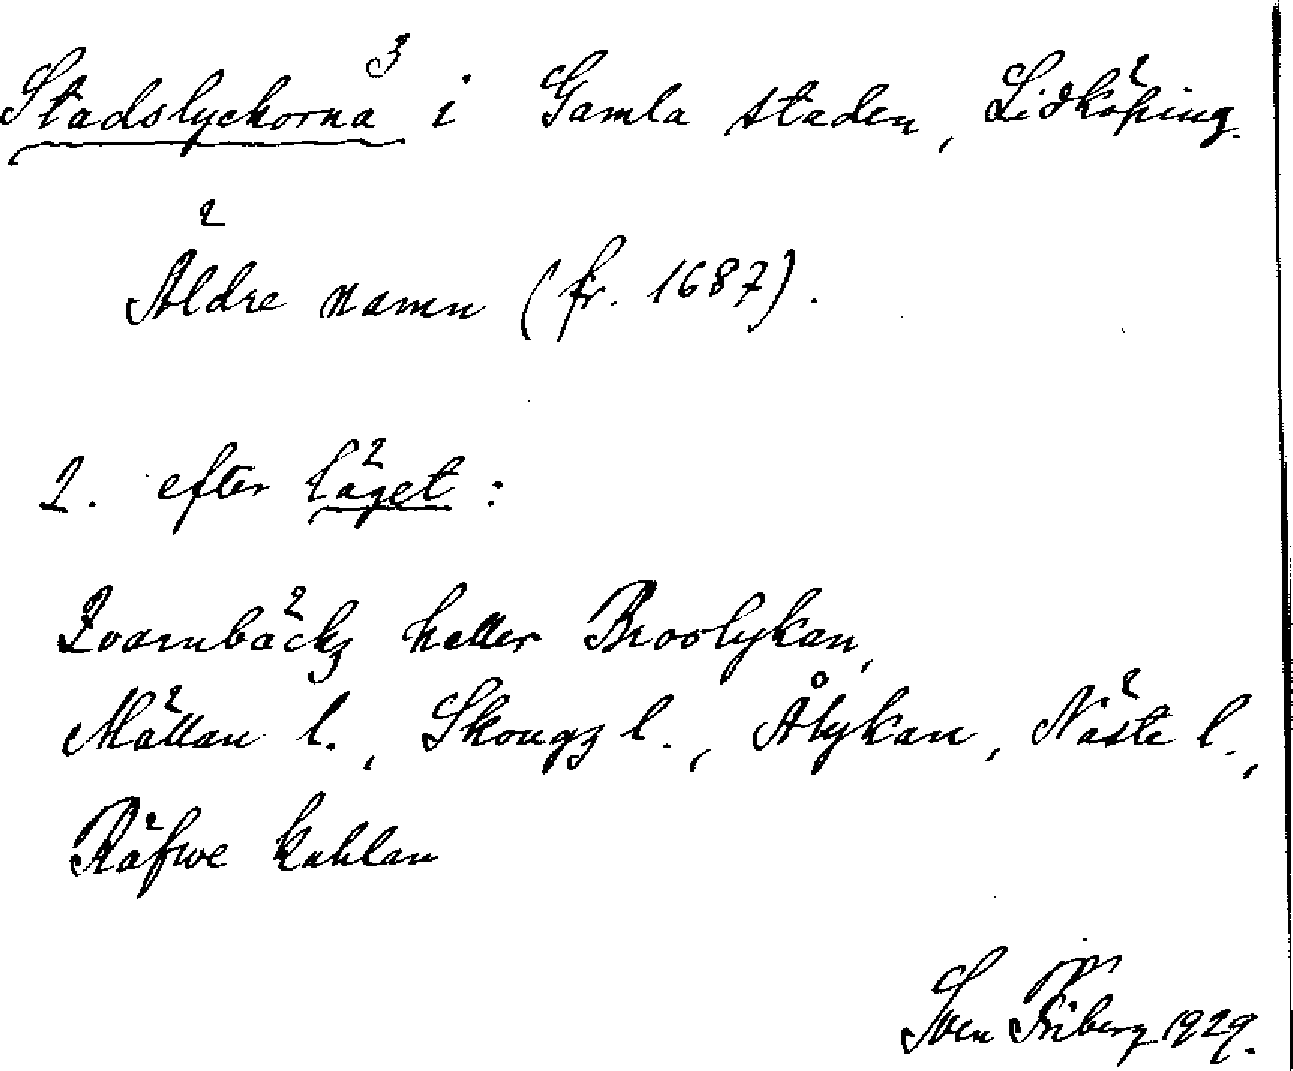 Stadslyckorna³ i Gamla staden, Lidköping.
Äldre namn (fr. 1687).
2. efter läget:
Qvarnbäckz heller Broolykan,
Mällan l., Skougz l., Ålykan, Näste l.,
Räfwe kahlan
Sven Friberg 1929.